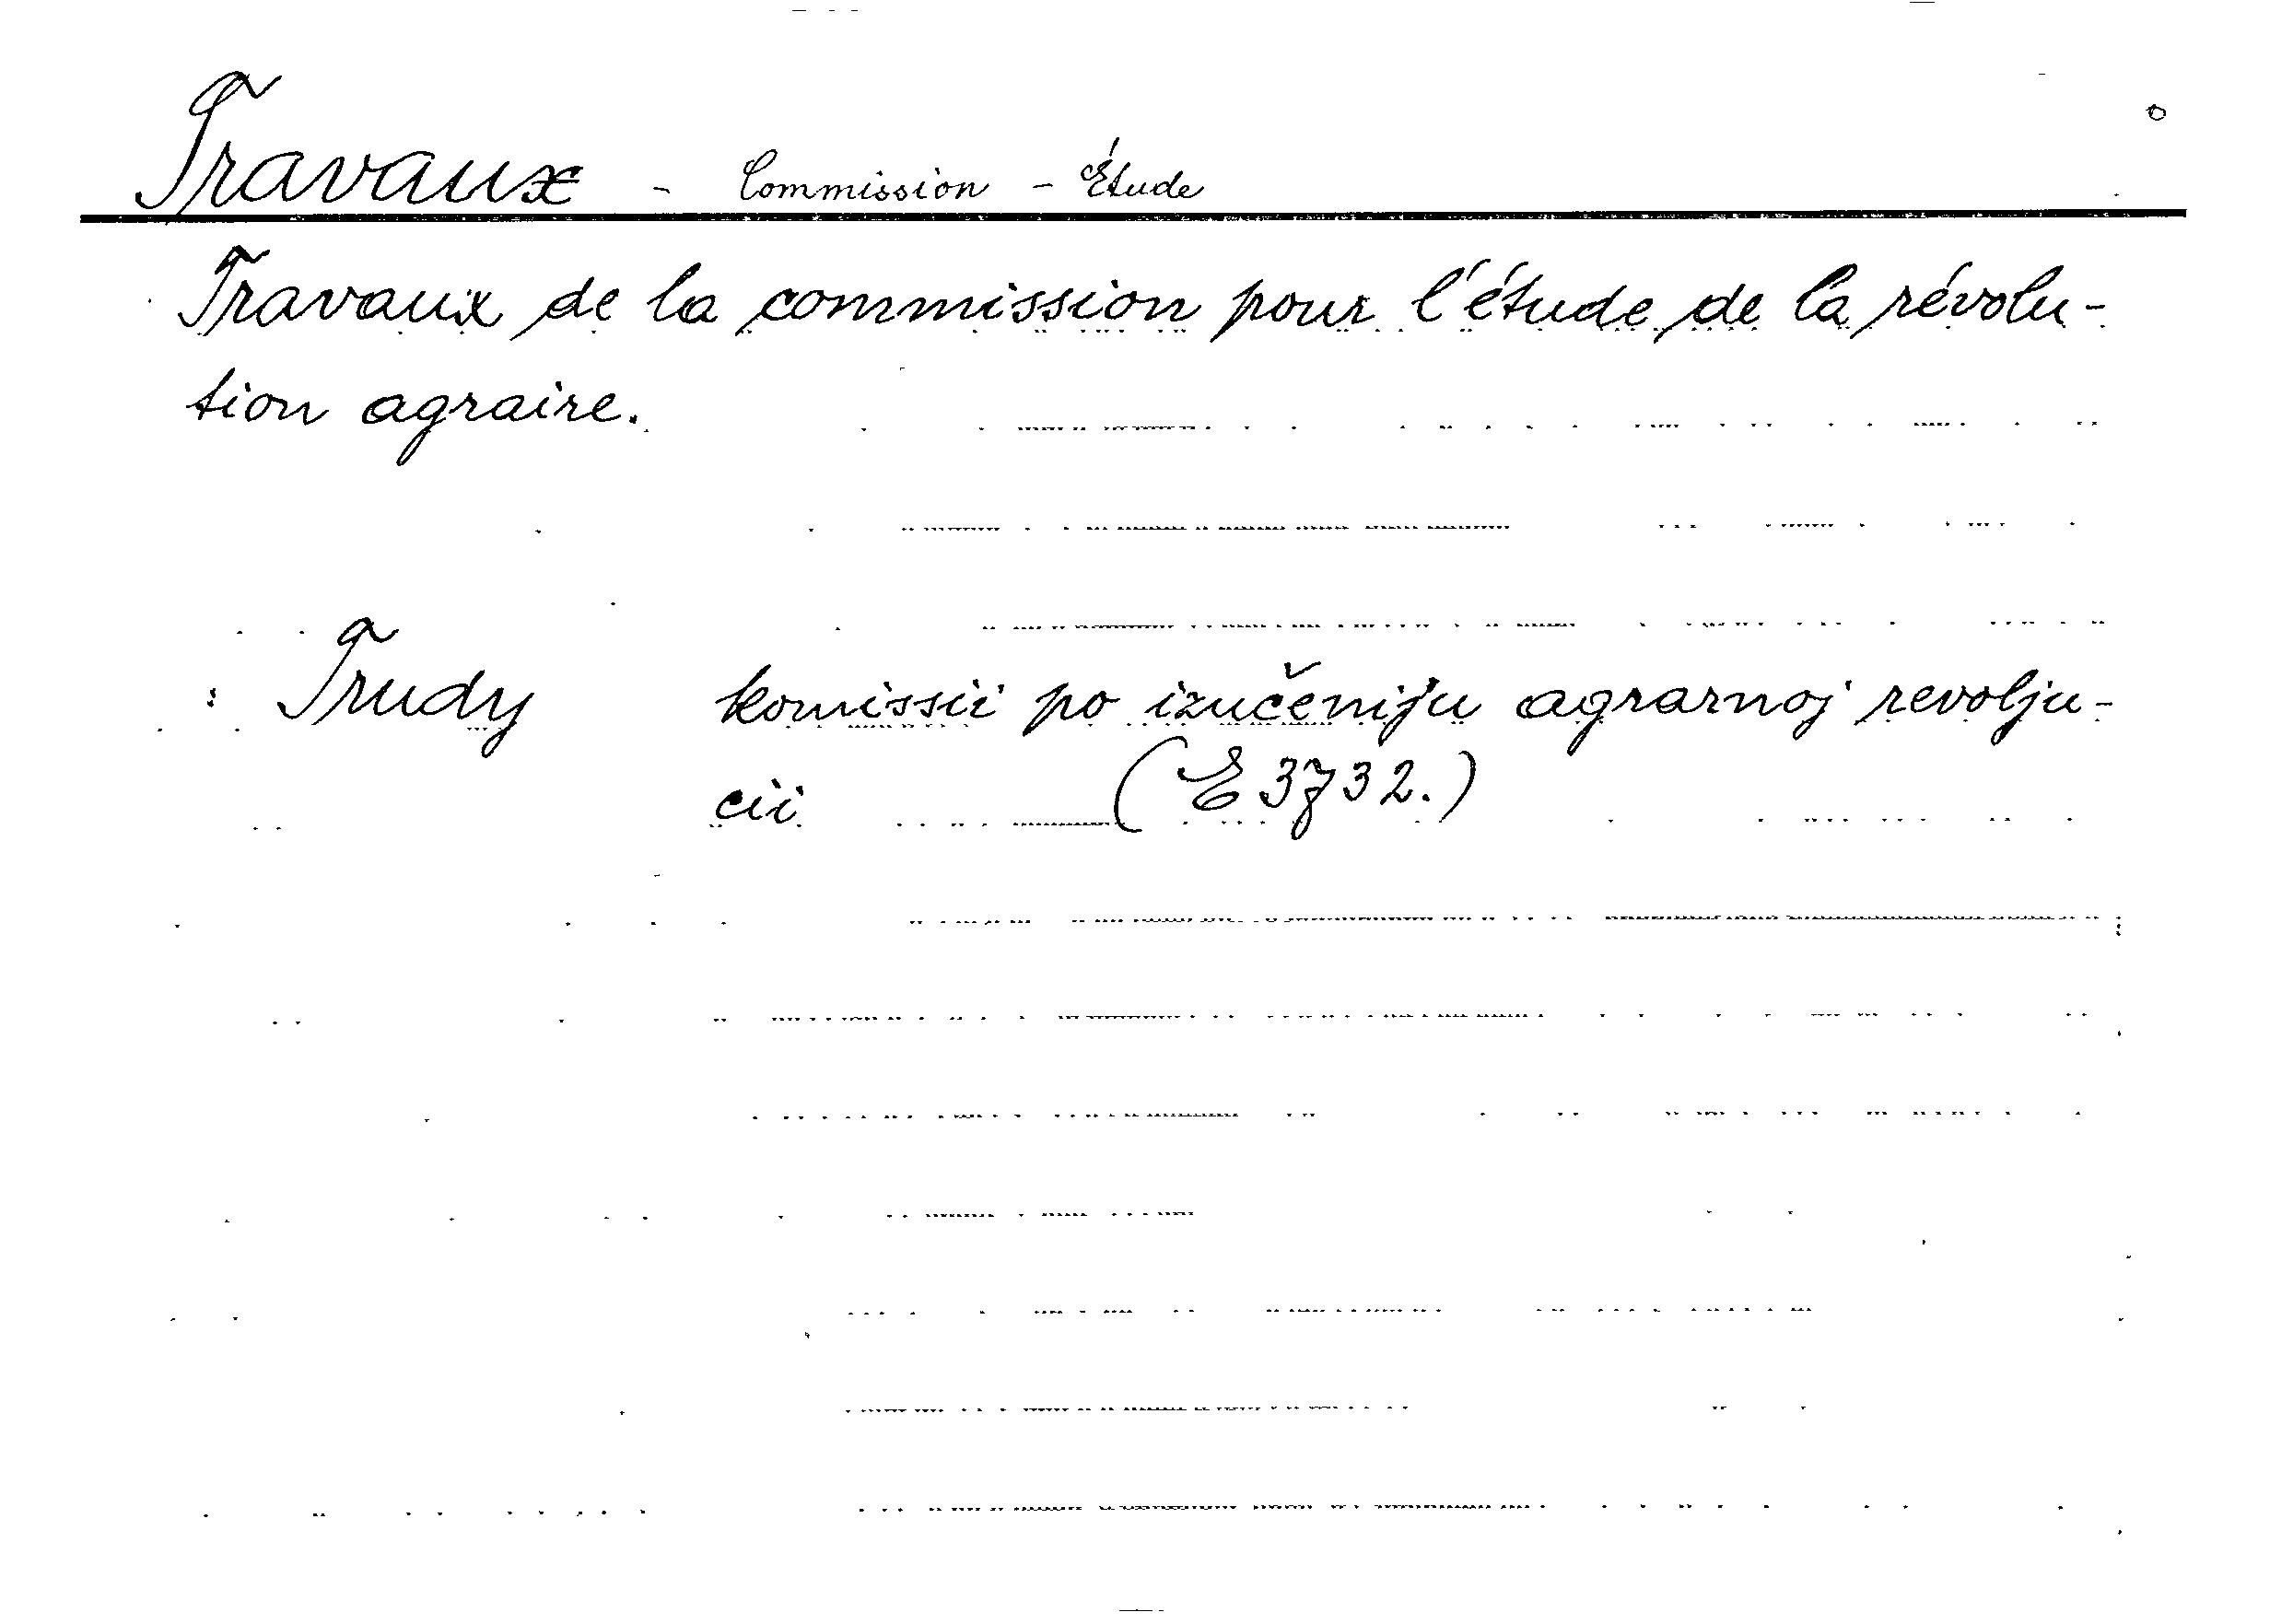 Travaux - Commission - Étude
Travaux de la commission pour l'étude de la révolu-
tion agraire.
: Trudy komissii po izučeniju agrarnoj revolju-
cii (E 3732.)